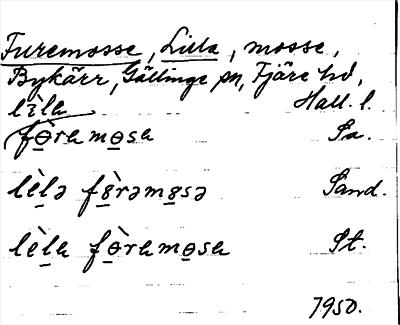 Furemosse, Lilla, mosse,
Bykärr, Gällinge sn, Fjäre hd,
lìla Hall. l.
fɵ̀ramɵsa Sa.
lèlə fɵ̀rəmɵsə Sand.
lèla fɵ̀ramɵsa St.
1950.